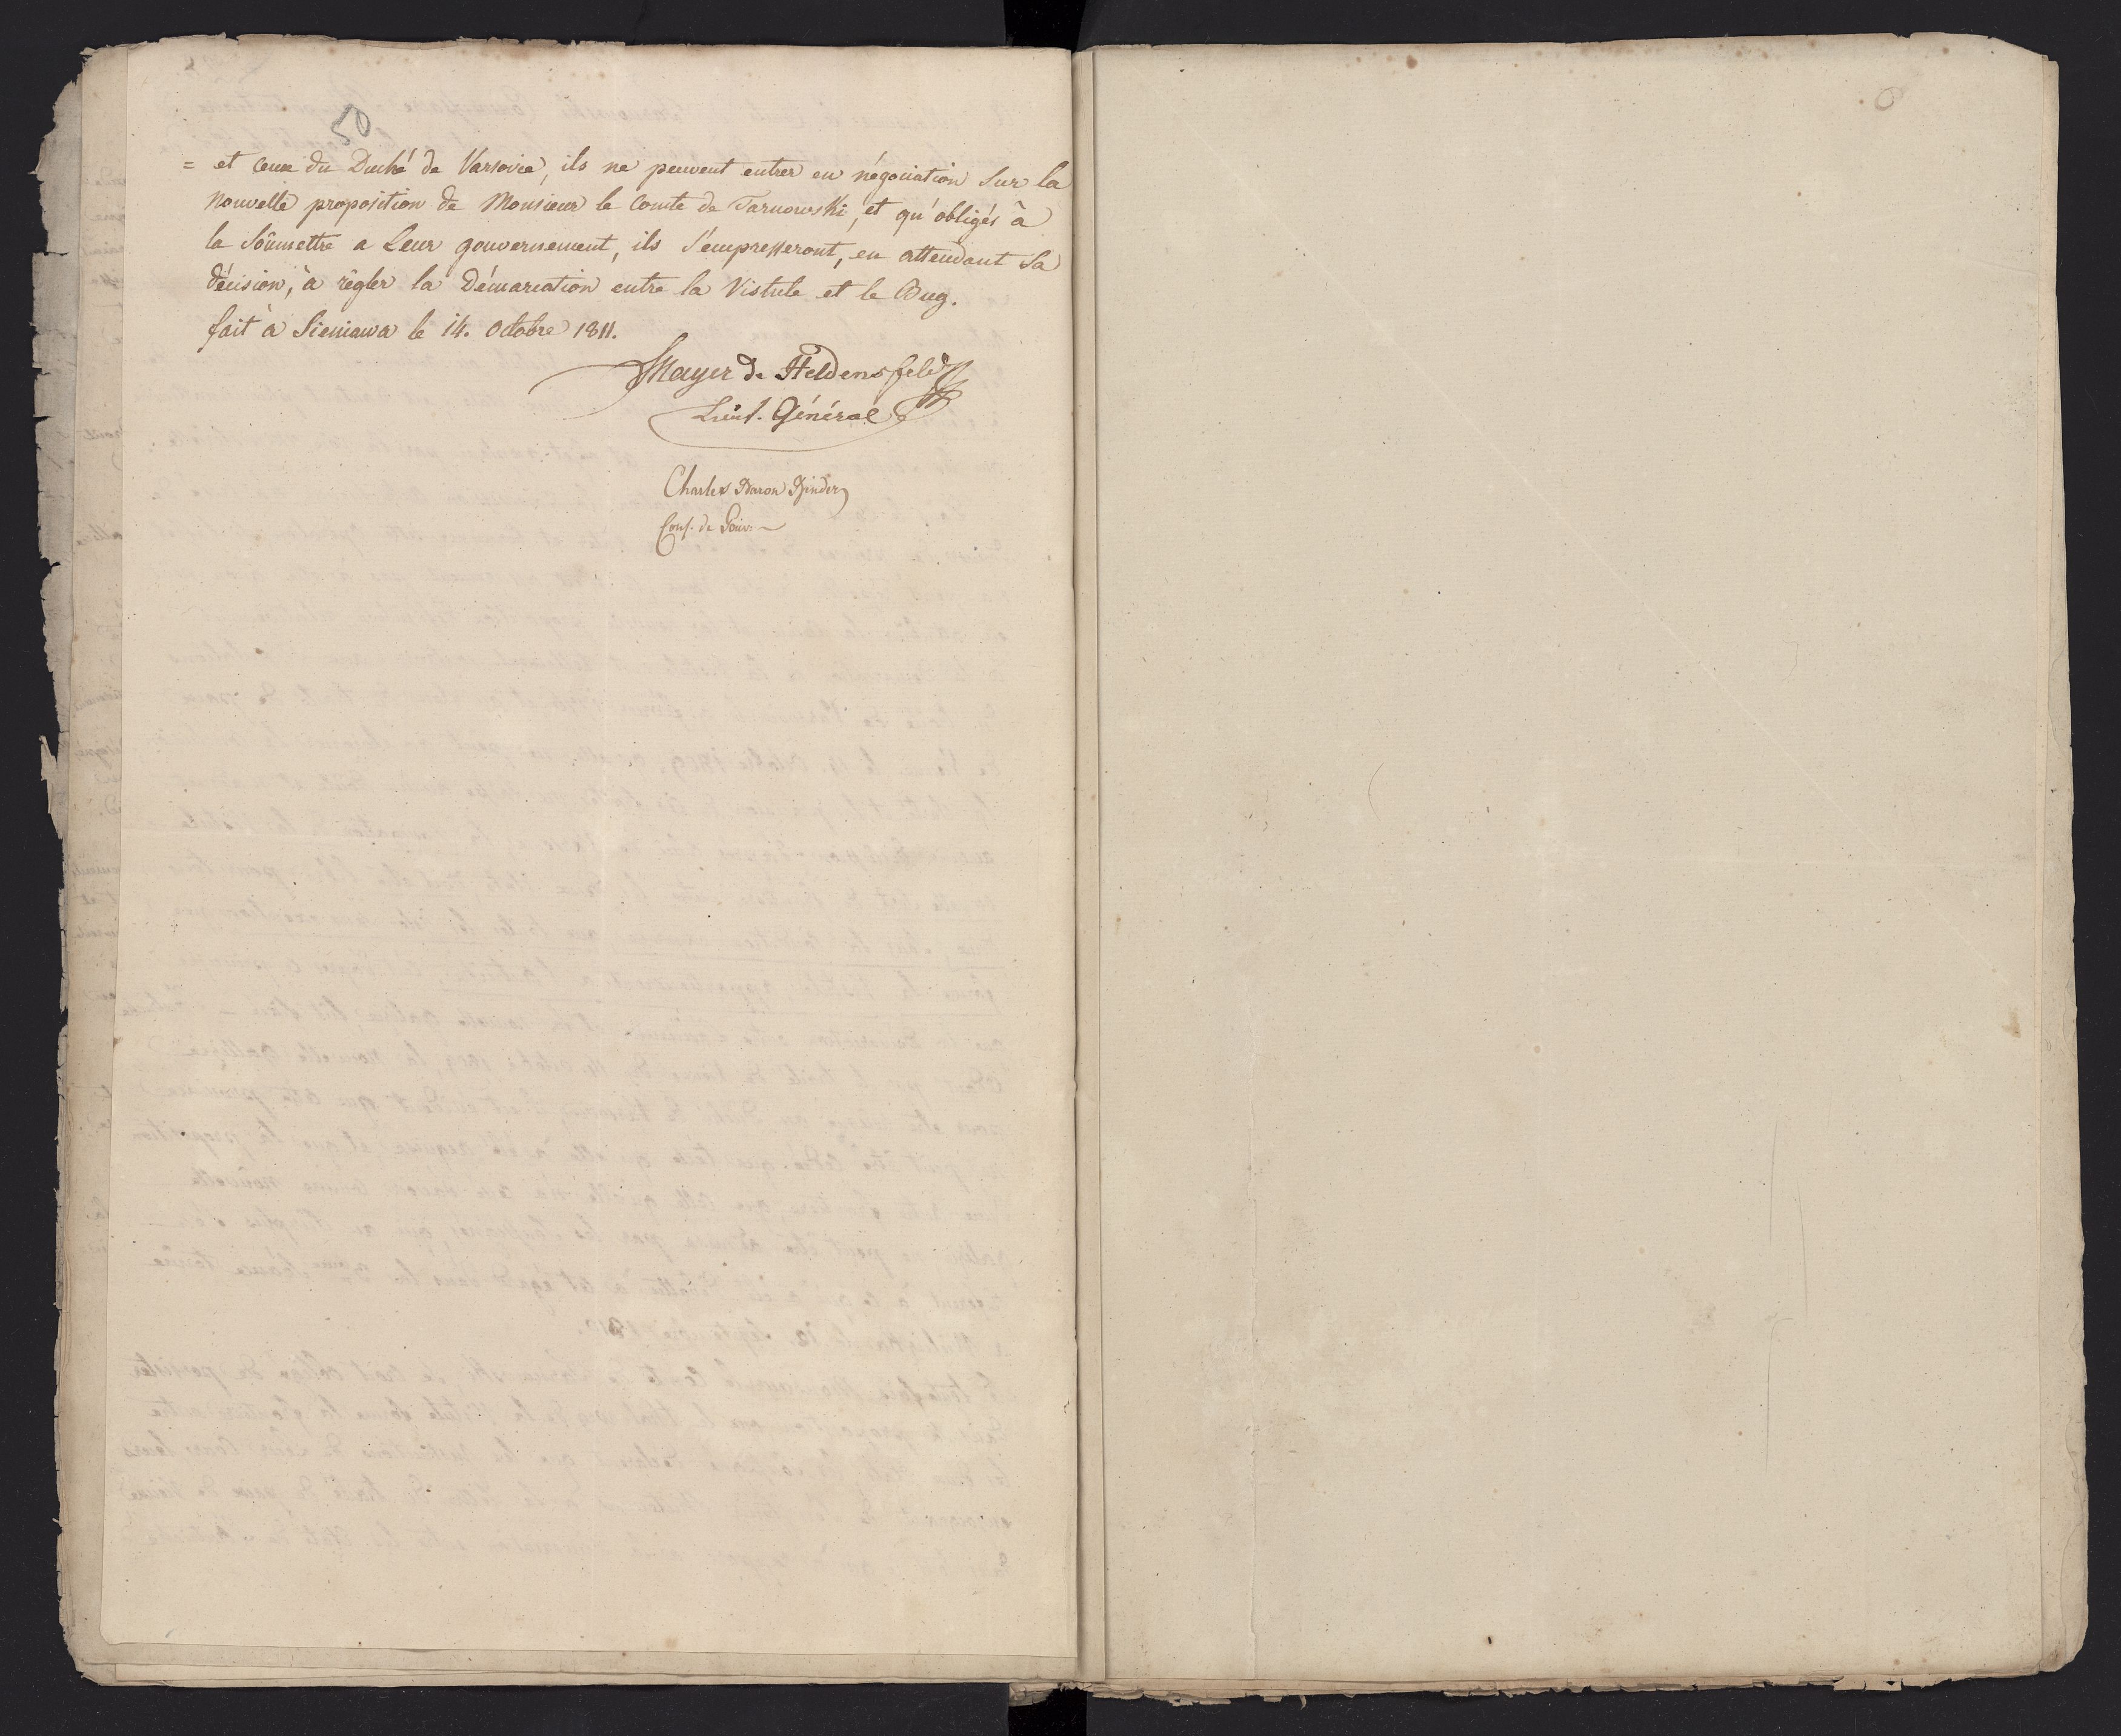 50
= et ceux du Duché de Varsovie, ils ne peuvent entrer en négociation sur la
nouvelle proposition de Monsieur le Comte de Tarnowski, et qu'obligés à
la soûmettre a Leur gouvernement, ils s'empresseront, en attendant sa
décision, à règler la démarcation entre la Vistule et le Bug.
fait à Sieniawa le 14. Octobre 1811.
Mayer de Heldensfeld
Lieut. Général
Charles Baron Binder
Cons. de Gouv.